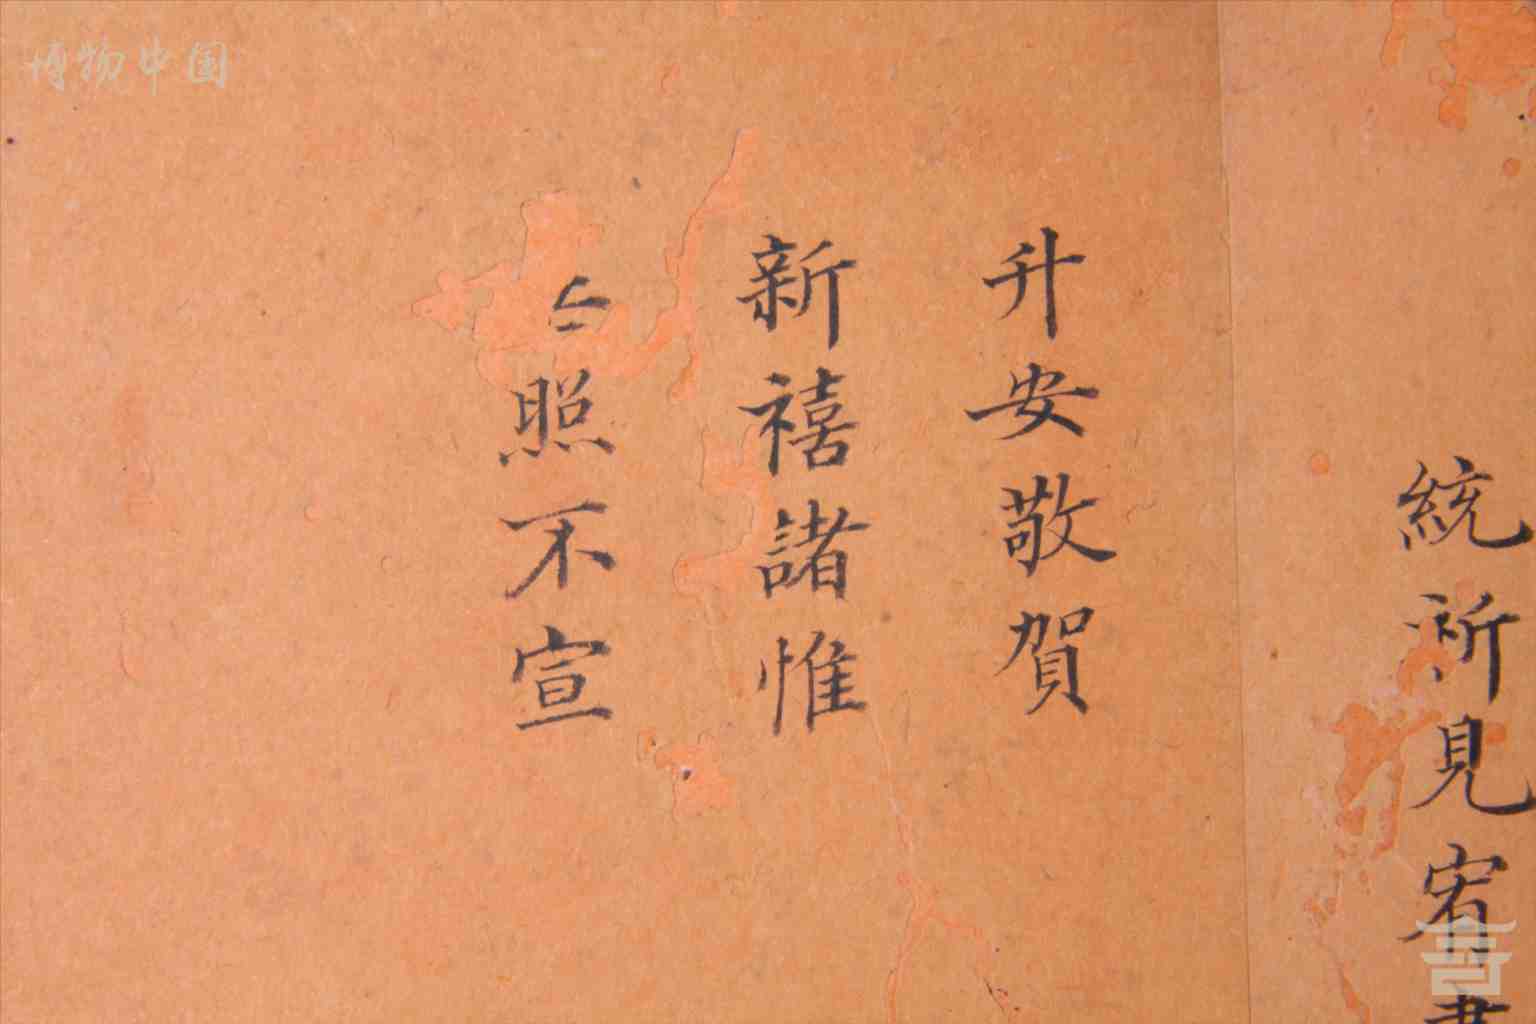 博物中国
統祈見宥肅
升安敬賀
新禧諸惟
照不宣